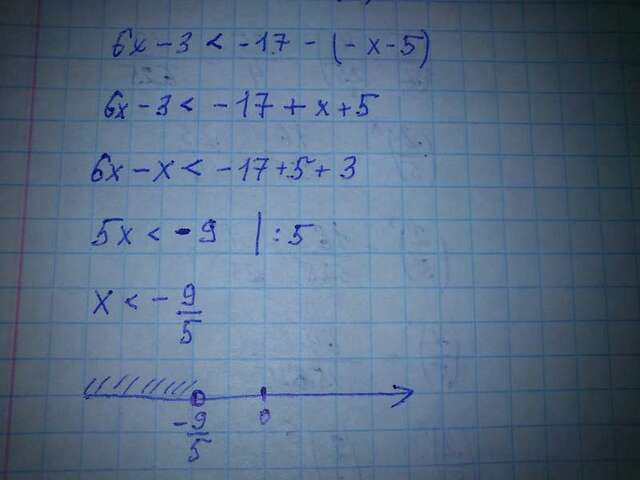 6x - 3 < -17 - (-x - 5)
6x - 3 < -17 + x + 5
6x - x < -17 + 5 + 3
5x < -9 | : 5
x < - 9/5
-9/5 0